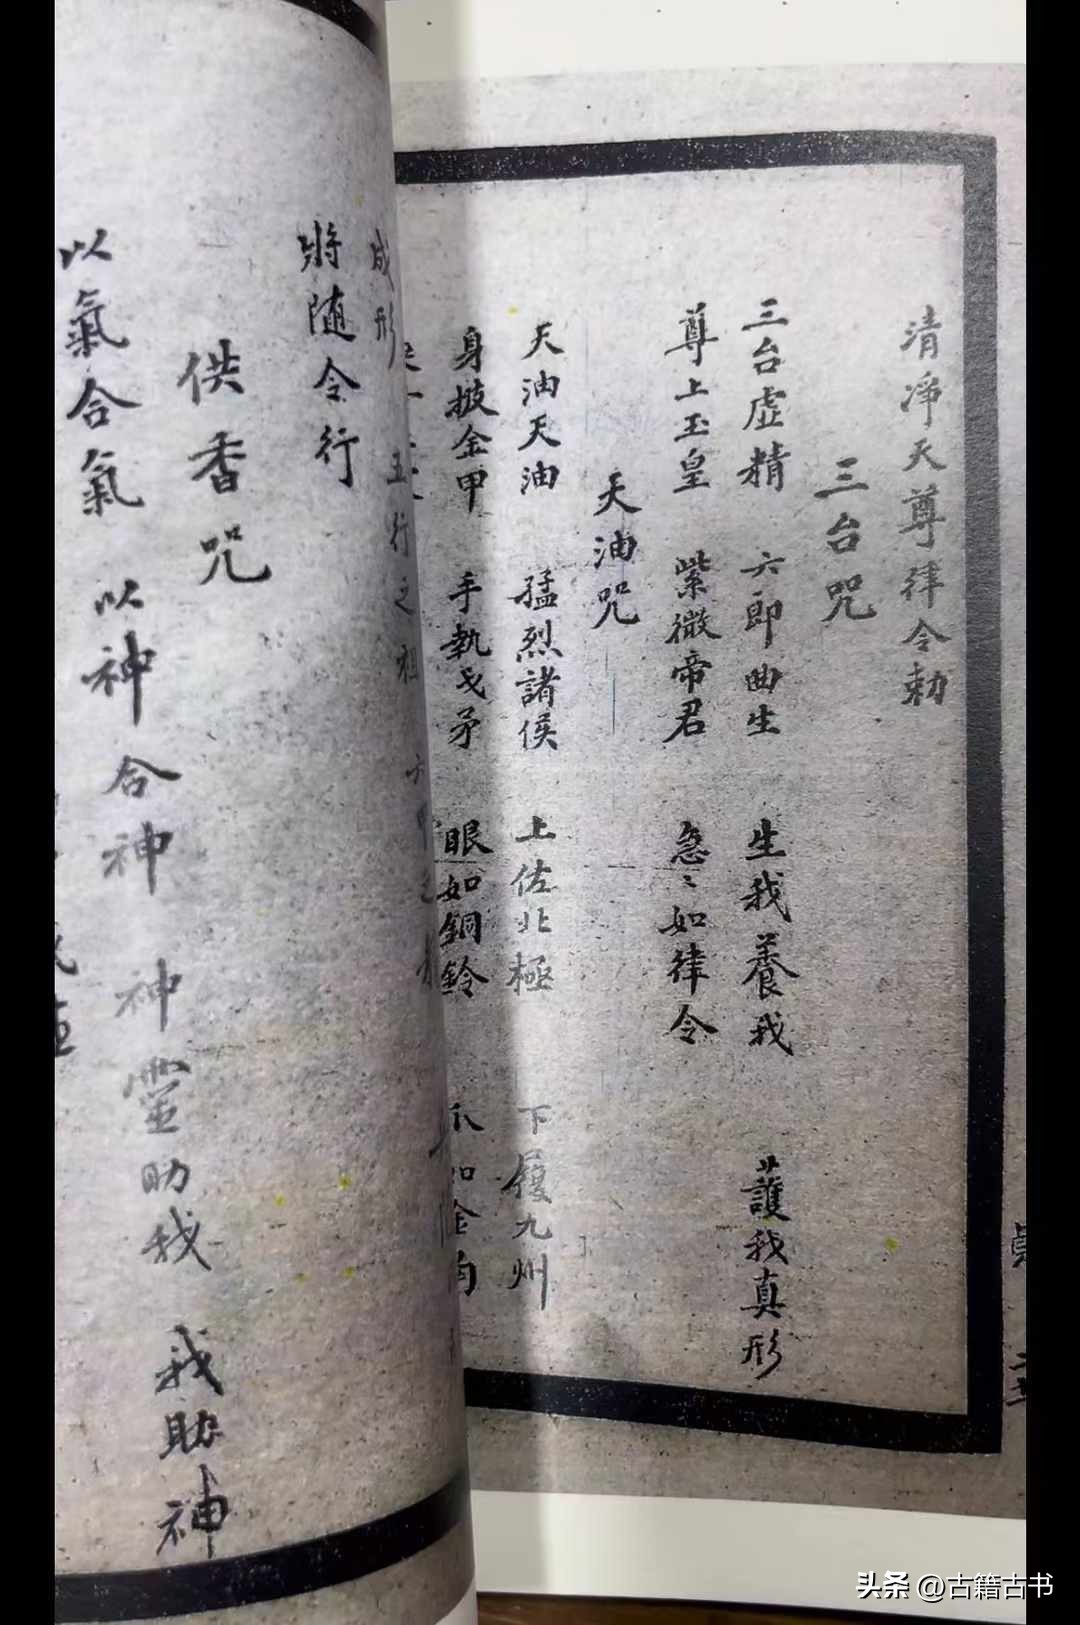 清凈天尊律令勅
三台咒
三台虛精 六即曲生 生我養我 護我真形
尊上玉皇 紫微帝君 急〻如律令
天油咒
天油天油 猛烈諸侯 上佐北極 下履九州
身披金甲 手執戈矛 眼如銅鈴 爪如金勾
成形 五行之祖 六甲之
將隨令行
供香咒
以氣合氣 以神合神 神靈助我 我助神
头条 @古籍古书